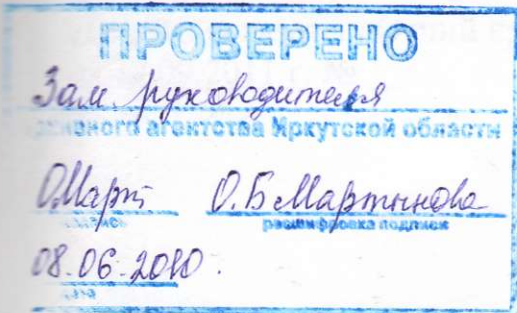 ПРОВЕРЕНО
Зам. руководителя
агентства Иркутской области
О.Март О.Б Мартынова
расшифровка подписи
08.06.2010.